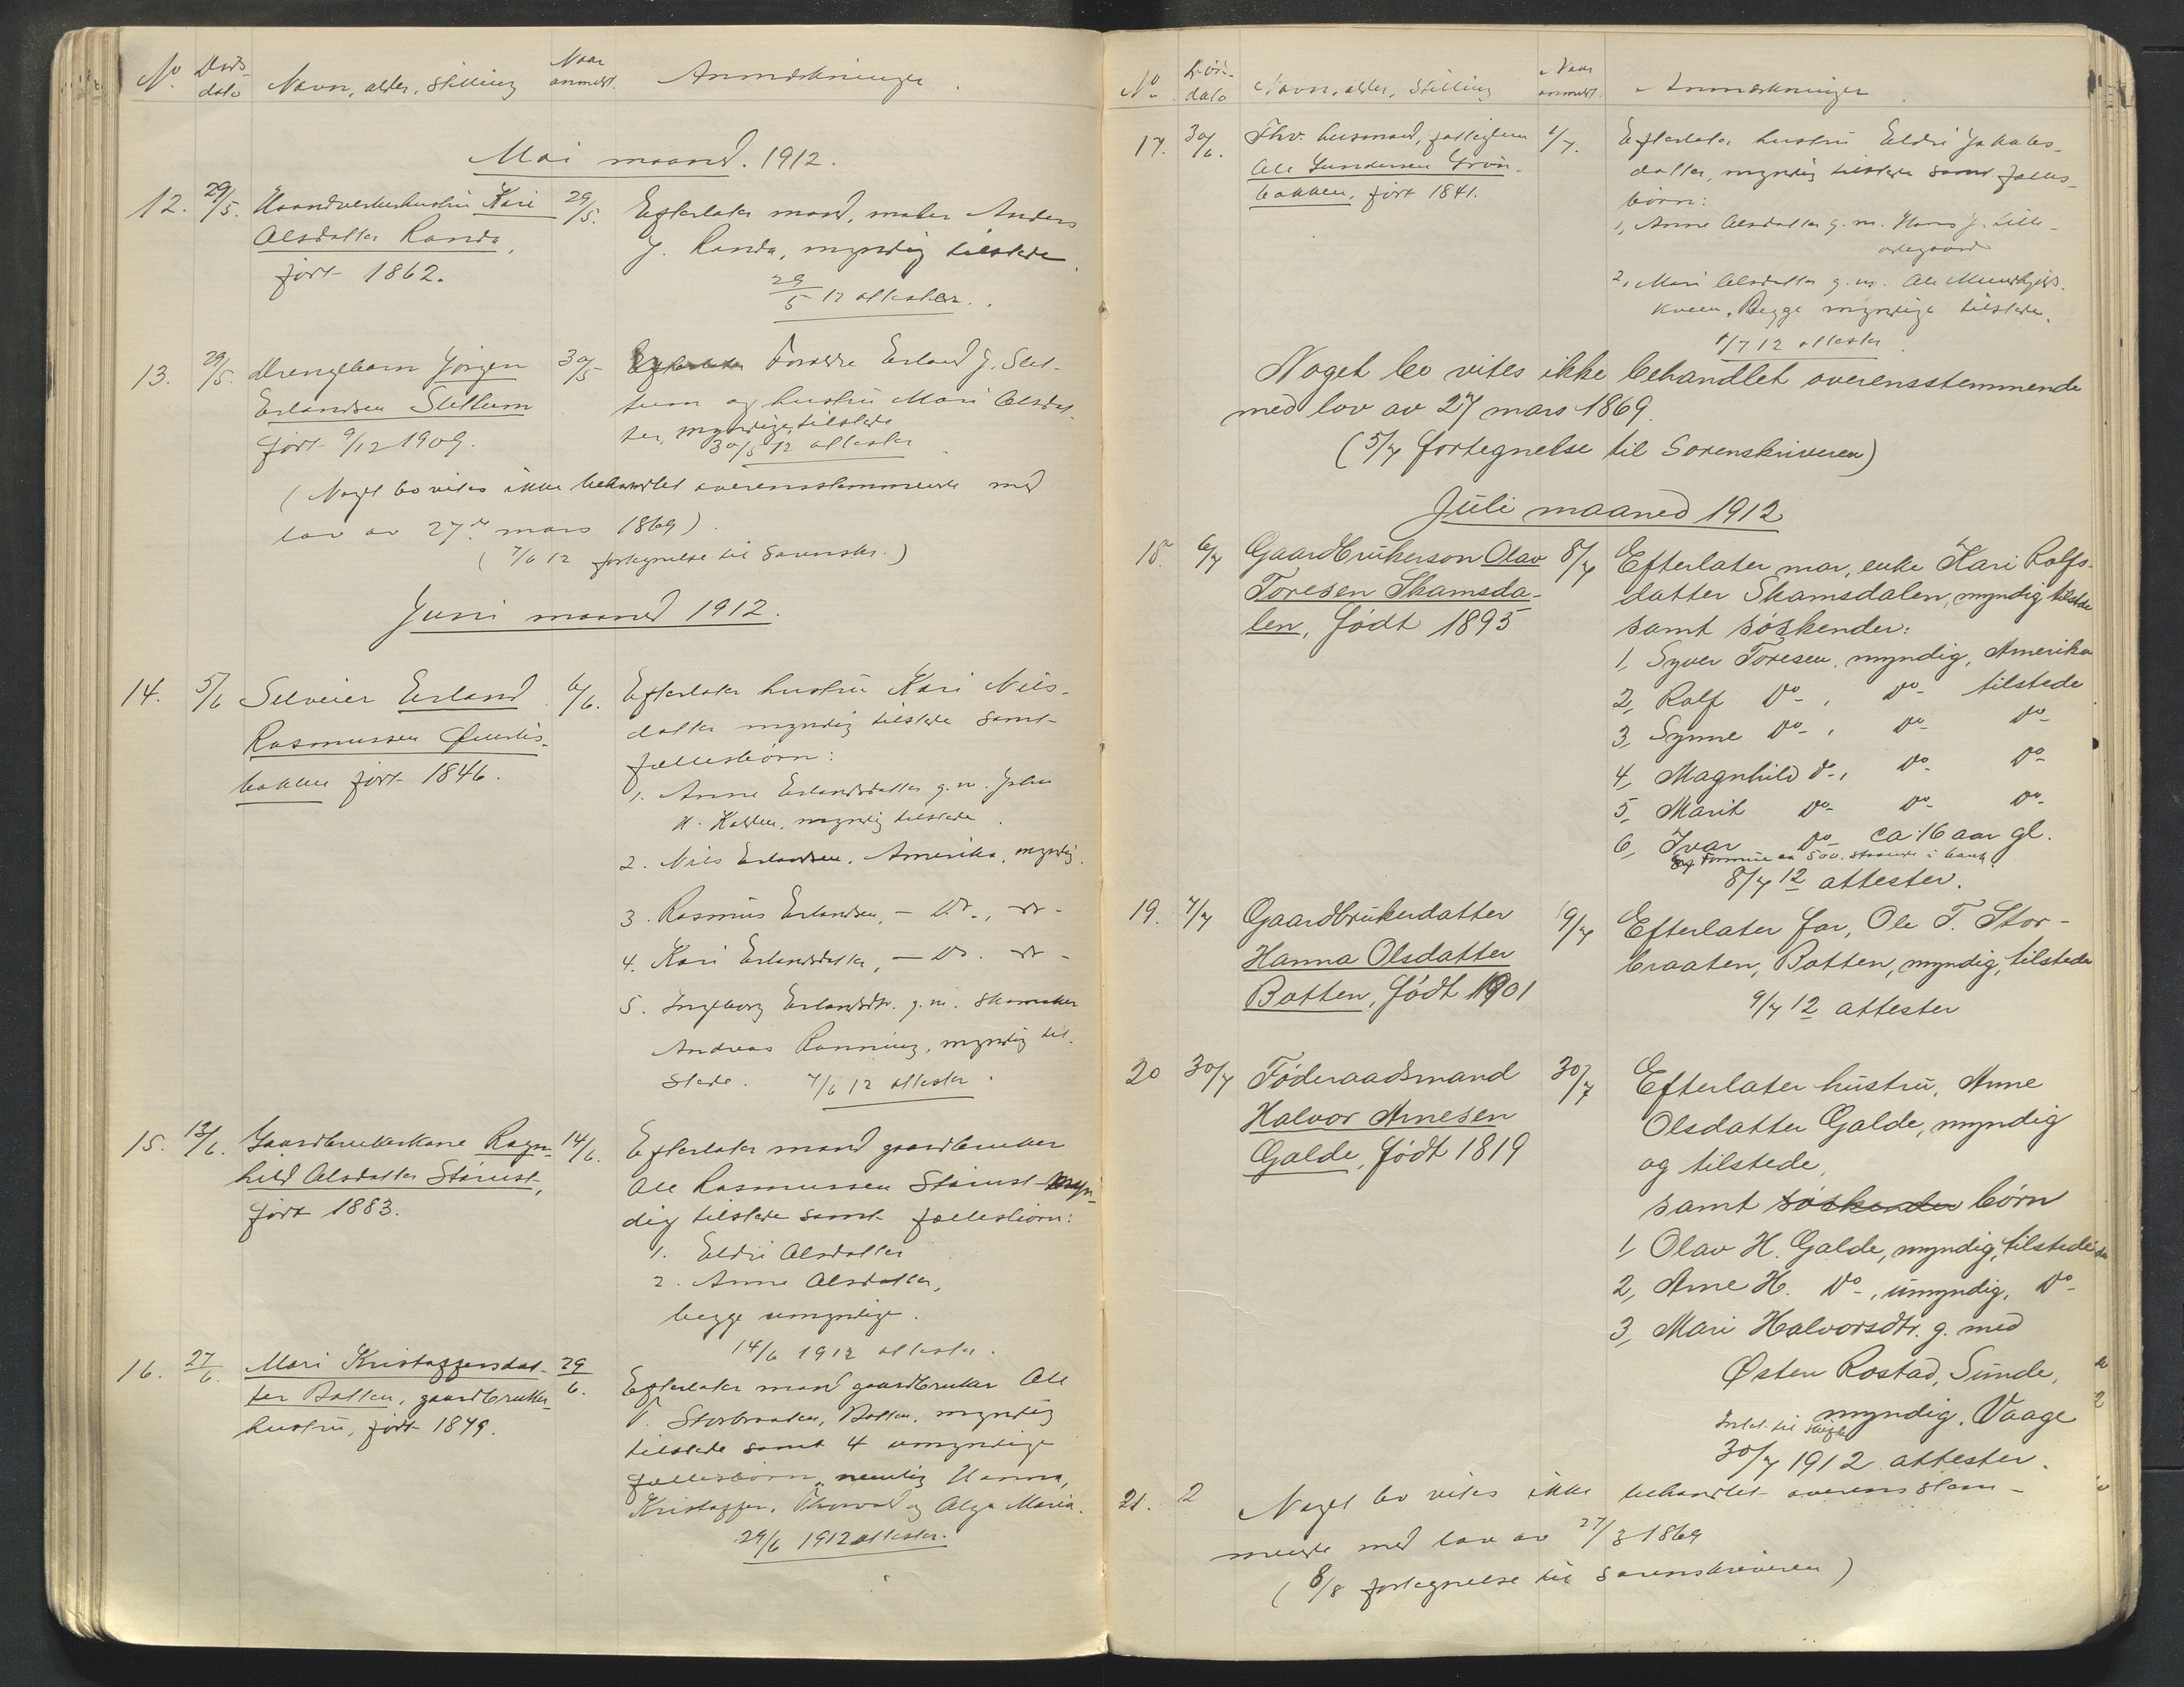 No Døds- Navn, alder, stilling Naar Anmerkninger.
dato anmeldt.
Mai maaned. 1912.
12. 29/5. Haandverkerhustru Kari 29/5. Efterlater mand, maler Anders
Olsdatter Randa, J. Randa, myndig tilstede.
født 1862. 29/5 12 attester.
13. 29/5. Drengebarn Jörgen 30/5 Forældre Erland J. Slet-
Erlandsen Slettum tum og hustru Mari Olsdat-
født 9/12 1909. ter, myndige, tilstede
30/5 12 attester
(Noget bo vites ikke behandlet overensstemmende med
lov av 27de mars 1869).
(7/6 12 fortegnelse til Sorenskr.)
Juni maaned 1912.
14. 5/6 Selveier Erland 6/6. Efterlater hustru Kari Nils-
Rasmussen datter myndig tilstede samt
bakken født 1846. fællesbörn:
1. Anne Erlandsdatter g.m. John
H. myndig tilstede.
2. Nils Erlandsen, Amerika, myndig.
3. Rasmus Erlandsen, - Do., Do -
4. Kari Erlandsdatter, - Do. Do -
5. Ingeborg Erlandsdtr. g.m. Skomaker
Andreas Rønning, myndig til-
stede. 7/6 12 attester.
15. 13/6. Gaardbrukerkone Ragn- 14/6. Efterlater mand gaardbruker
hild Olsdatter Stamst, Ole Rasmussen Stamst myn-
født 1883. dig tilstede samt fællesbörn:
1. Eldri Olsdatter
2. Anne Olsdatter,
begge umyndige.
14/6 1912 attester.
16. 27/6. Mari Kristoffersdat- 29/6. Efterlater mand gaardbruker Ole
ter Botten, gaardbruker- T. Storbraaten, Botten, myndig
hustru, født 1879. tilstede samt 4 umyndige
fællesbörn, nemlig Hanna,
Kristoffer, Thorvald og Olga Maria.
29/6 1912 attester.
No Døds- Navn, alder, stilling Naar Anmerkninger.
dato anmeldt.
17. 30/6. Fhv. husmand, fattiglem 1/7. Efterlater hustru Eldri Jakobs-
Ole Gundersen Grön- datter, myndig tilstede samt fælles-
bakken, født 1841. börn:
1, Anne Olsdatter g.m. Hans J. Lille-
ødegaard
2, Mari Olsdatter g.m. Ole
Kveen. Begge myndige tilstede.
1/7 12 attester
Noget bo vites ikke behandlet overensstemmende
med lov av 27 mars 1869.
(5/7 fortegnelse til Sorenskriveren)
Juli maaned 1912
18. 6/7 Gaardbrukerson Olav 8/7 Efterlater mor, enke Kari Rolfs-
Toresen Skamsda- datter Skamsdalen, myndig tilstede
len, födt 1895 samt söskender:
1, Syver Toresen, myndig, Amerika
2, Rolf Do-, Do- tilstede
3, Synne Do-, Do- Do-
4, Magnhild Do-, Do- Do-
5, Marit Do- Do- Do-
6, Ivar Do- ca: 16 aar gl.
Formue ca 500. staaende i bank.
8/7 12 attester.
19. 7/7 Gaardbrukerdatter 9/7 Efterlater far, Ole T. Stor-
Hanna Olsdatter braaten, Botten, myndig, tilstede
Botten, födt 1901 9/7 12 attester
20 30/7 Föderaadsmand 30/7 Efterlater hustru, Anne
Halvor Arnesen Olsdatter Galde, myndig
Galde, födt 1819 og tilstede,
samt söskender börn
1, Olav H. Galde, myndig, tilstede
2, Arne H. Do-, umyndig, Do-
3, Mari Halvorsdtr. g. med
Østen Rostad, Sunde,
myndig. Vaage
Intet til skifte
30/7 1912 attester.
21. 2 Noget bo vites ikke behandlet overensstem-
mende med lov av 27/3 1869
(8/8 fortegnelse til Sorenskriveren)